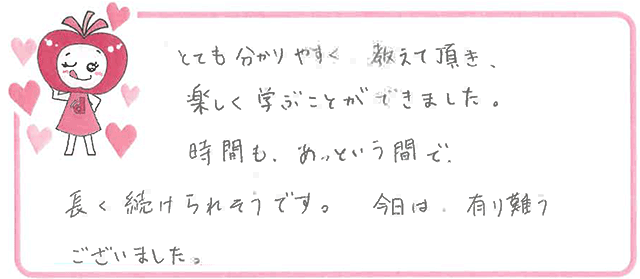 とても分かりやすく 教えて頂き、
楽しく学ぶことができました。
時間も、あっという間で、
長く続けられそうです。 今日は、有り難う
ございました。